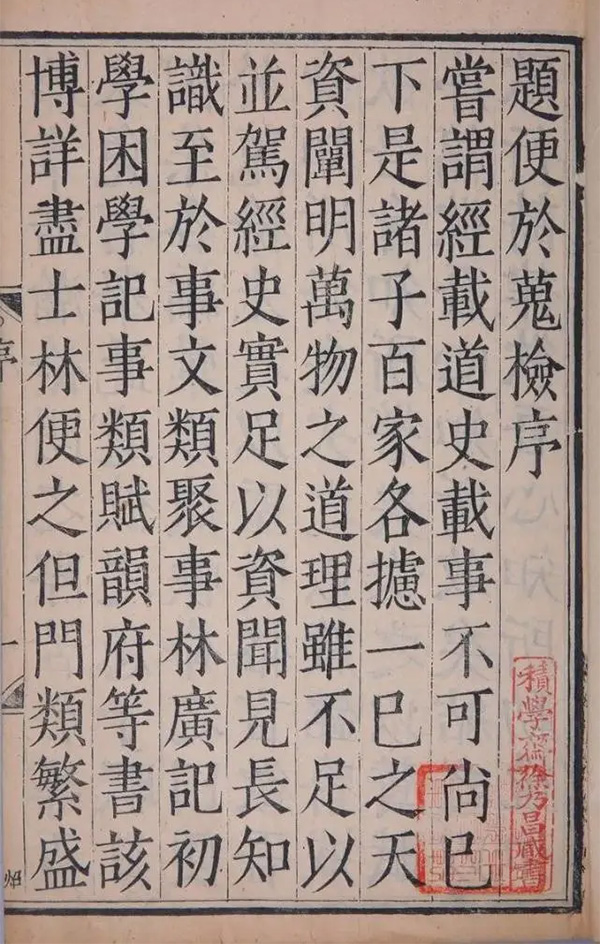 題便於蒐檢序
嘗謂經載道史載事不可尚已
下是諸子百家各攄一已之天
資闡明萬物之道理雖不足以
並駕經史實足以資聞見長知
識至於事文類聚事林廣記初
學困學記事類賦韻府等書該
博詳盡士林便之但門類繁盛
序
積學齋徐乃昌藏書